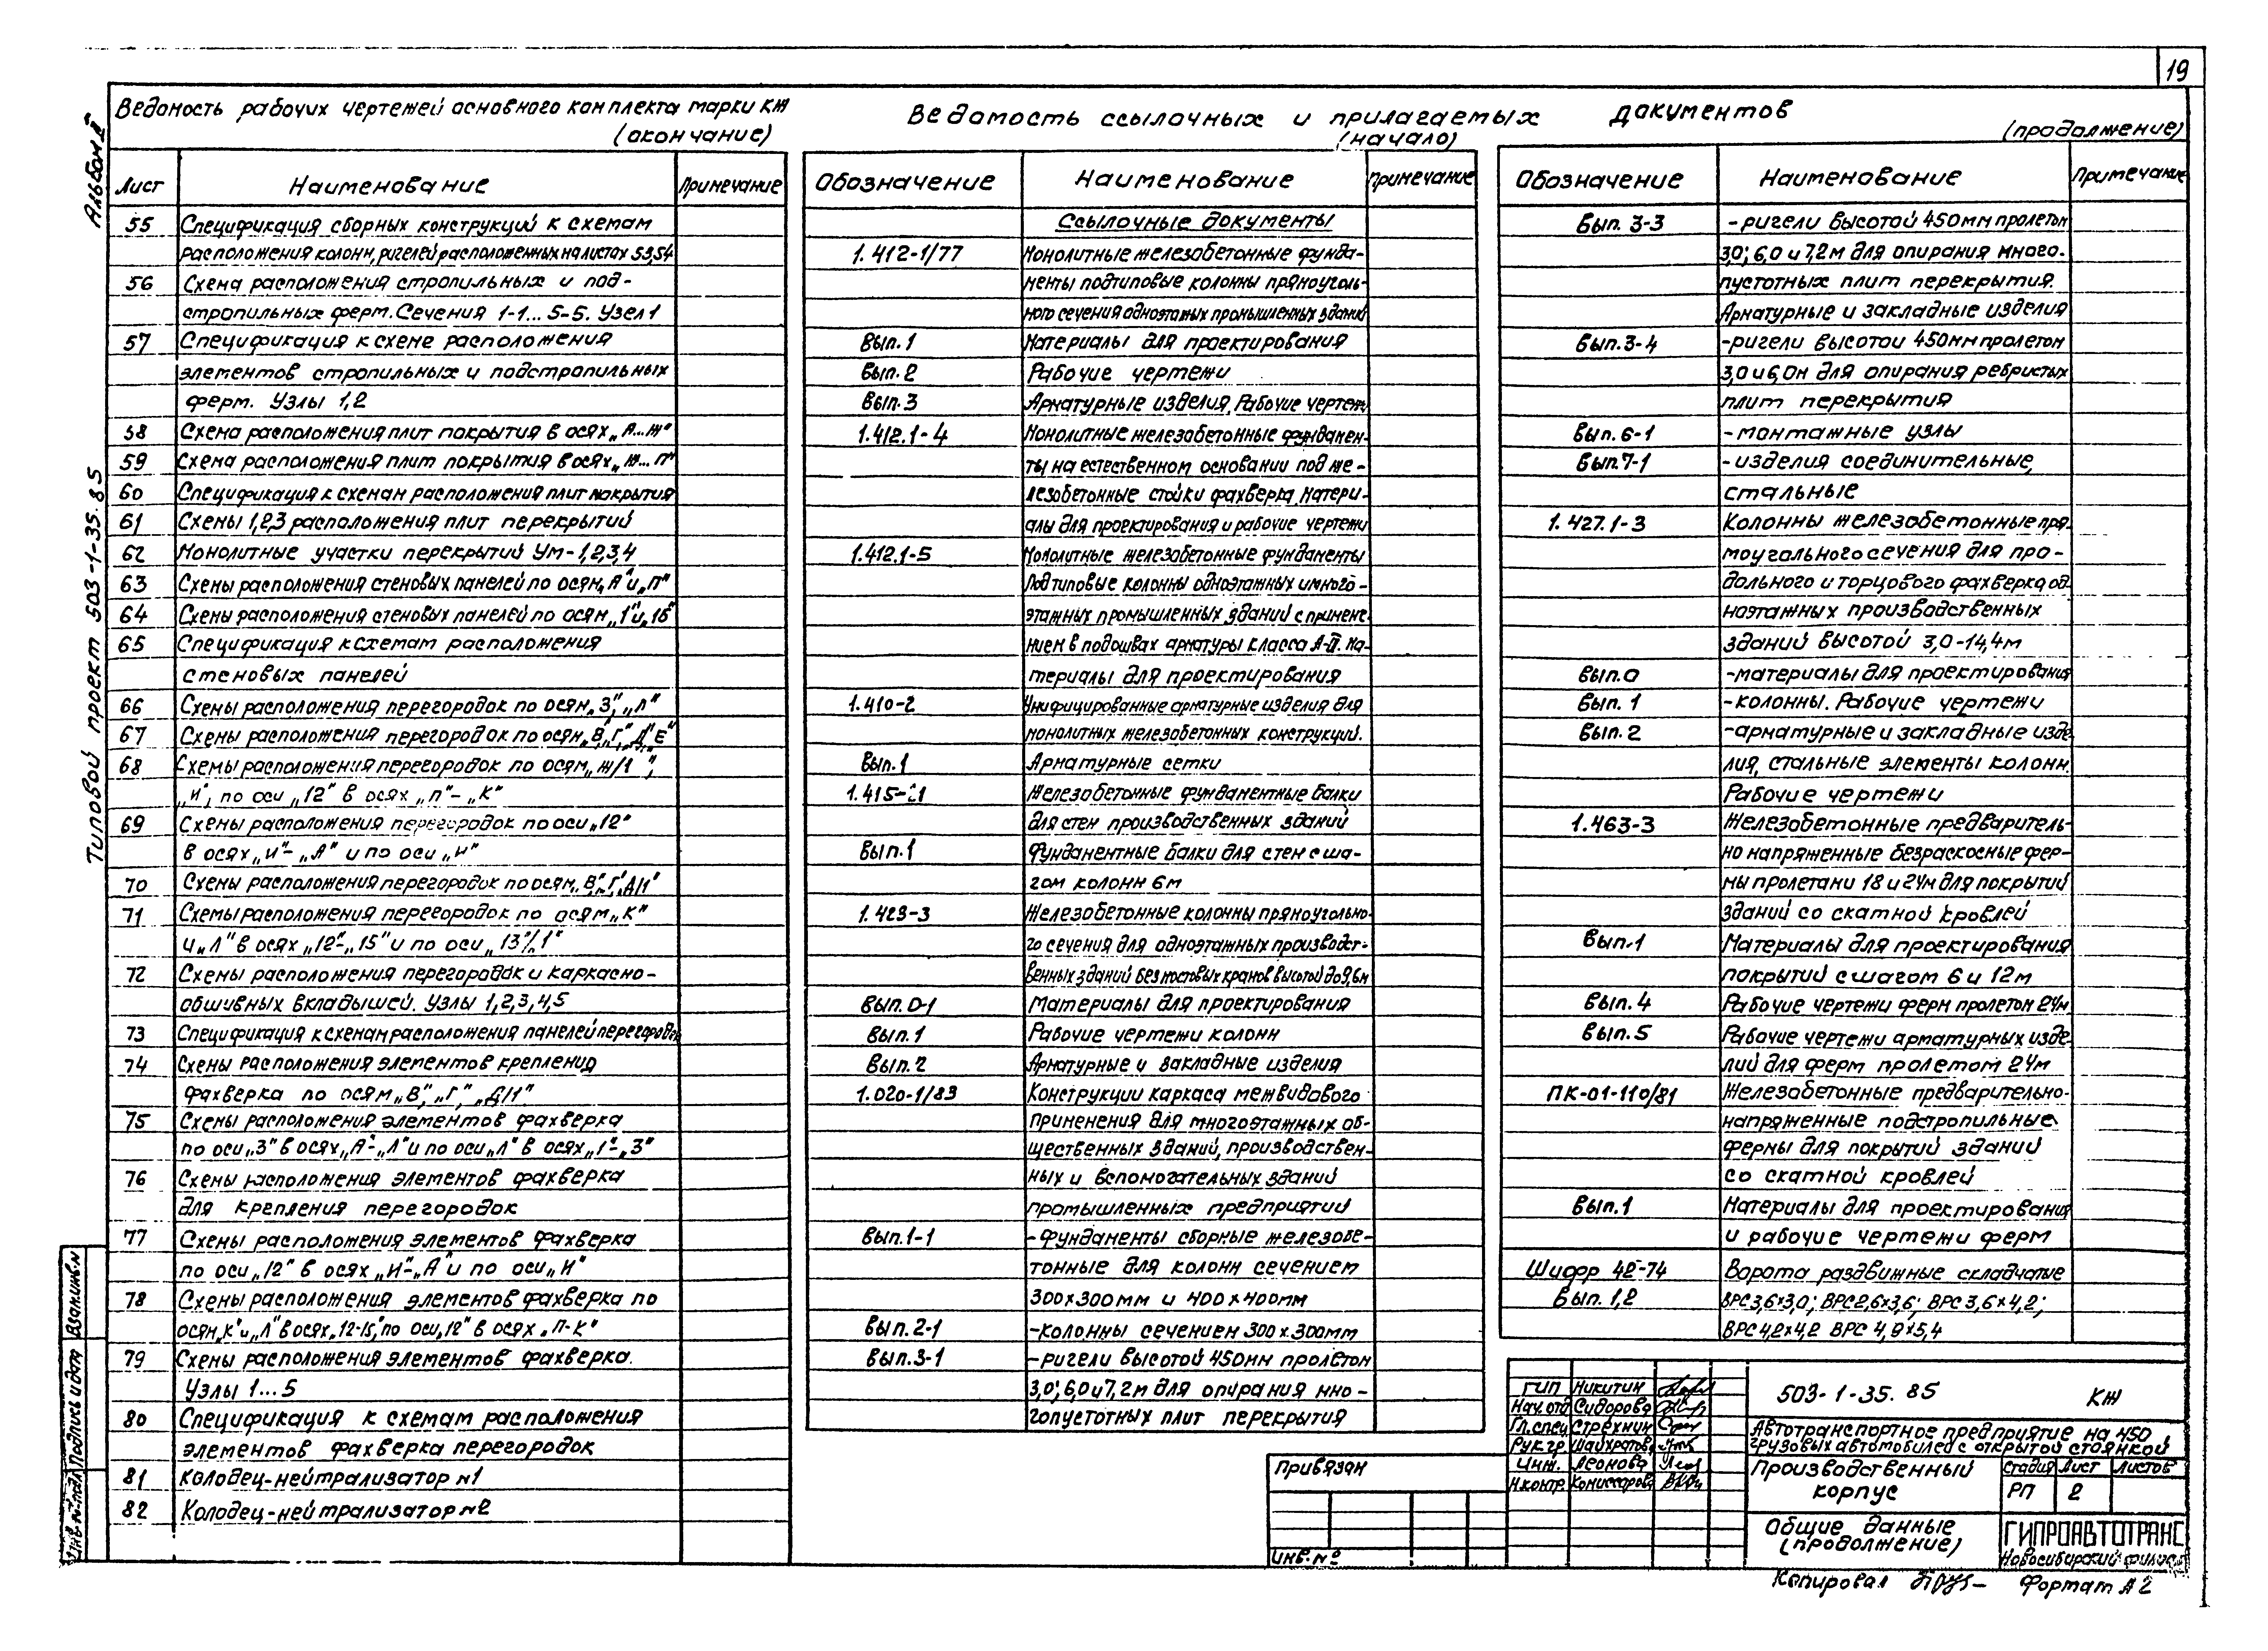 19
Альбом I
Типовой проект 503-1-35.85
Ведомость рабочих чертежей основного комплекта марки КЖ
(окончание)
Лист Наименование Примечание
55 Спецификация сборных конструкций к схемам
расположения колонн, ригелей расположенных на листах 53,54
56 Схема расположения стропильных и под-
стропильных ферм. Сечения 1-1... 5-5. Узел 1
57 Спецификация к схеме расположения
элементов стропильных и подстропильных
ферм. Узлы 1,2
58 Схема расположения плит покрытия в осях „А...Ж"
59 Схема расположения плит покрытия в осях „Ж...П"
60 Спецификация к схемам расположения плит покрытия
61 Схемы 1,2,3 расположения плит перекрытий
62 Монолитные участки перекрытий Ум-1,2,3,4
63 Схемы расположения стеновых панелей по осям „А" и „П"
64 Схемы расположения стеновых панелей по осям „1" и „15"
65 Спецификация к схемам расположения
стеновых панелей
66 Схемы расположения перегородок по осям „3", „Л"
67 Схемы расположения перегородок по осям „В", „Г", „Д", „Е"
68 Схемы расположения перегородок по осям „Ж/1",
„И", по оси „12" в осях „П"-„К"
69 Схемы расположения перегородок по оси „12"
в осях „И"-„А" и по оси „Н"
70 Схемы расположения перегородок по осям „В", „Г", „Д/1"
71 Схемы расположения перегородок по осям „К"
и „Л" в осях „12"-„15" и по оси „13/1"
72 Схемы расположения перегородок и каркасно-
обшивных вкладышей. Узлы 1,2,3,4,5
73 Спецификация к схемам расположения панелей перегородок
74 Схемы расположения элементов крепления
фахверка по осям „В", „Г", „Д/1"
75 Схемы расположения элементов фахверка
по оси „3" в осях „А"-„Л" и по оси „Л" в осях „1"-„3"
76 Схемы расположения элементов фахверка
для крепления перегородок
77 Схемы расположения элементов фахверка
по оси „12" в осях „И"-„А" и по оси „Н"
78 Схемы расположения элементов фахверка по
осям „К" и „Л" в осях „12-15", по оси „12" в осях „П-К"
79 Схемы расположения элементов фахверка.
Узлы 1...5
80 Спецификация к схемам расположения
элементов фахверка перегородок
81 Колодец-нейтрализатор №1
82 Колодец-нейтрализатор №2
Ведомость ссылочных и прилагаемых документов
(начало)
Обозначение Наименование Примечание
Ссылочные документы
1.412-1/77 Монолитные железобетонные фунда-
менты под типовые колонны прямоуголь-
ного сечения одноэтажных промышленных зданий
Вып.1 Материалы для проектирования
Вып.2 Рабочие чертежи
Вып.3 Арматурные изделия. Рабочие чертежи
1.412.1-4 Монолитные железобетонные фундамен-
ты на естественном основании под же-
лезобетонные стойки фахверка. Матери-
алы для проектирования и рабочие чертежи
1.412.1-5 Монолитные железобетонные фундаменты
Под типовые колонны одноэтажных и много-
этажных промышленных зданий с примене-
нием в подошвах арматуры класса А-III. Ма-
териалы для проектирования
1.410-2 Унифицированные арматурные изделия для
монолитных железобетонных конструкций.
Вып.1 Арматурные сетки
1.415-1 Железобетонные фундаментные балки
для стен производственных зданий
Вып.1 Фундаментные балки для стен с ша-
гом колонн 6м
1.423-3 Железобетонные колонны прямоугольно-
го сечения для одноэтажных производст-
венных зданий без мостовых кранов высотой до 9,6м
Вып.0-1 Материалы для проектирования
Вып.1 Рабочие чертежи колонн
Вып.2 Арматурные и закладные изделия
1.020-1/83 Конструкции каркаса межвидового
применения для многоэтажных об-
щественных зданий, производствен-
ных и вспомогательных зданий
промышленных предприятий
Вып.1-1 -фундаменты сборные железобе-
тонные для колонн сечением
300х300мм и 400х400мм
Вып.2-1 -колонны сечением 300х300мм
Вып.3-1 -ригели высотой 450мм пролетом
3,0; 6,0 и 7,2м для опирания мно-
гопустотных плит перекрытия
(продолжение)
Обозначение Наименование Примечание
Вып. 3-3 -ригели высотой 450мм пролетом
3,0; 6,0 и 7,2м для опирания много-
пустотных плит перекрытия.
Арматурные и закладные изделия
Вып.3-4 -ригели высотой 450мм пролетом
3,0 и 6,0м для опирания ребристых
плит перекрытия
Вып.6-1 -монтажные узлы
Вып.7-1 -изделия соединительные
стальные
1.427.1-3 Колонны железобетонные пря-
моугольного сечения для про-
дольного и торцового фахверка од-
ноэтажных производственных
зданий высотой 3,0-14,4м
Вып.0 -материалы для проектирования
Вып.1 -колонны. Рабочие чертежи
Вып.2 -арматурные и закладные изде-
лия, стальные элементы колонн.
Рабочие чертежи
1.463-3 Железобетонные предваритель-
но напряженные безраскосные фер-
мы пролетами 18 и 24м для покрытий
зданий со скатной кровлей
Вып.1 Материалы для проектирования
покрытий с шагом 6 и 12м
Вып.4 Рабочие чертежи ферм пролетом 24м
Вып.5 Рабочие чертежи арматурных изде-
лий для ферм пролетом 24м
ПК-01-110/81 Железобетонные предварительно-
напряженные подстропильные
фермы для покрытий зданий
со скатной кровлей
Вып.1 Материалы для проектирования
и рабочие чертежи ферм
Шифр 42-74 Ворота раздвижные складчатые
Вып. 1,2 ВРС3,6х3,0; ВРС2,6х3,6; ВРС 3,6х4,2;
ВРС4,2х4,2 ВРС 4,9х5,4
ГИП Никитин
Нач.отд Сидорова
Гл.спец Стрехнин
Рук.гр. Шайхратов
Инж. Леонова
Н.контр. Комиссарова
503-1-35.85 КЖ
Автотранспортное предприятие на 450
грузовых автомобилей с открытой стоянкой
Производственный
корпус
Стадия Лист Листов
РП 2
Общие данные
(продолжение)
ГИПРОАВТОТРАНС
Новосибирский филиал
Привязан
Инв.№
Взам.инв.№
Подпись и дата
Инв.№ подл.
Копировал
Формат А2